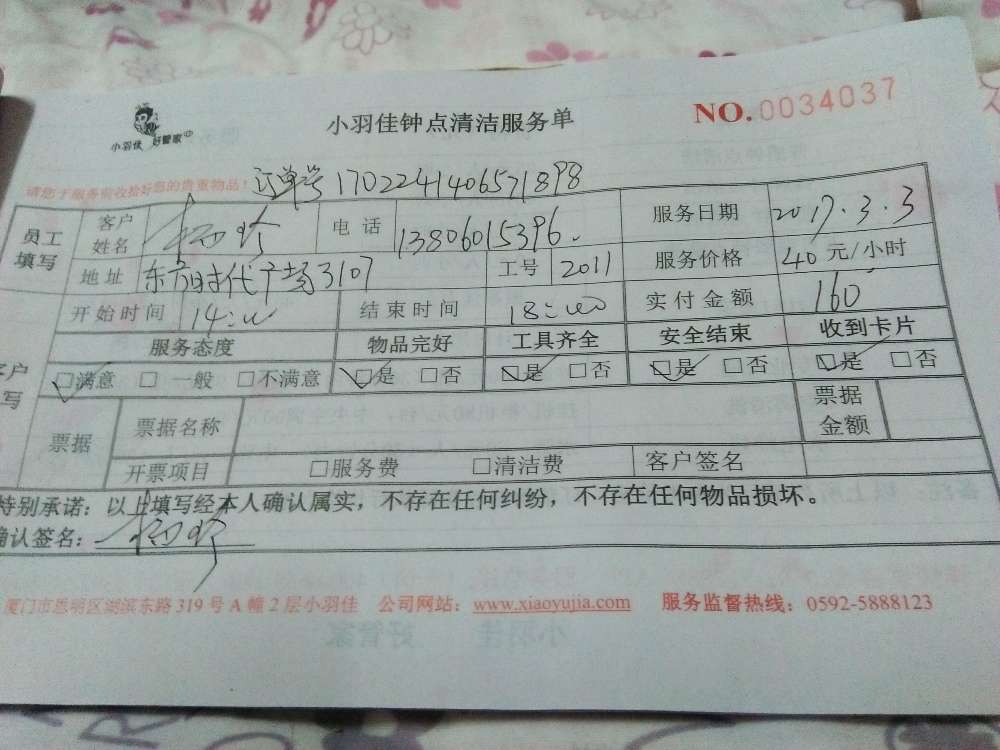 小羽佳 好管家
小羽佳钟点清洁服务单
NO.0034037
请您于服务前收拾好您的贵重物品！ 订单号 1702241406571898
员工填写 客户姓名 电话 13806015396. 服务日期 2017.3.3
地址 东方时代广场3107 工号 2011 服务价格 40 元/小时
开始时间 14:00 结束时间 18:00 实付金额 160
客户填写 服务态度 物品完好 工具齐全 安全结束 收到卡片
□满意 □一般 □不满意 □是 □否 □是 □否 □是 □否 □是 □否
票据 票据名称 票据金额
开票项目 □服务费 □清洁费 客户签名
特别承诺：以上填写经本人确认属实，不存在任何纠纷，不存在任何物品损坏。
确认签名：
厦门市思明区湖滨东路 319 号 A 幢 2 层小羽佳 公司网站：www.xiaoyujia.com 服务监督热线：0592-5888123